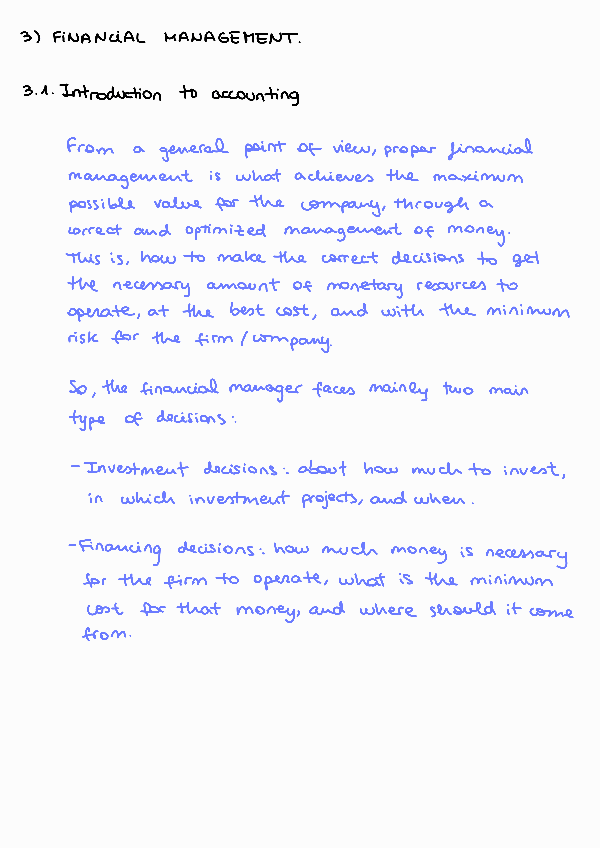 3) FINANCIAL MANAGEMENT.
3.1. Introduction to accounting
From a general point of view, proper financial
management is what achieves the maximum
possible value for the company, through a
correct and optimized management of money.
This is, how to make the correct decisions to get
the necessary amount of monetary resources to
operate, at the best cost, and with the minimum
risk for the firm / company.
So, the financial manager faces mainly two main
type of decisions:
- Investment decisions: about how much to invest,
in which investment projects, and when.
- Financing decisions: how much money is necessary
for the firm to operate, what is the minimum
cost for that money, and where should it come
from.